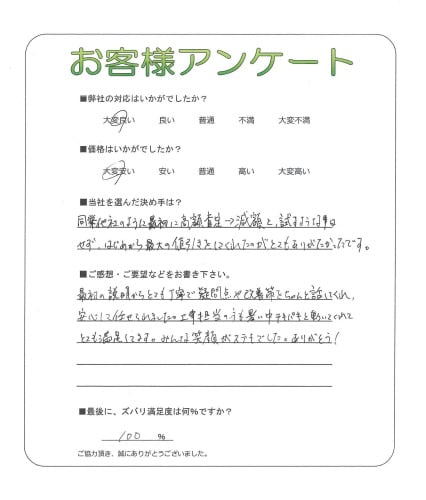 お客様アンケート
■弊社の対応はいかがでしたか？
大変良い 良い 普通 不満 大変不満
■価格はいかがでしたか？
大変安い 安い 普通 高い 大変高い
■当社を選んだ決め手は？
同業他社のように最初に高額査定→減額と、試すような事
せず、はじめから最大の値引きをしてくれたのがとてもありがたかったです。
■ご感想・ご要望などをお書き下さい。
最初の説明からとても丁寧で疑問点や改善策とちゃんと話してくれ、
安心して任せられました。工事担当の方も暑い中テキパキと動いてくれて
とても満足してます。みんな笑顔がステキでした。ありがとう！
■最後に、ズバリ満足度は何%ですか？
100 %
ご協力頂き、誠にありがとうございました。